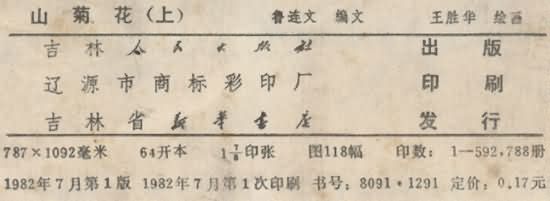 山菊花(上) 鲁连文 编文 王胜华 绘画
吉林人民出版社 出版
辽源市商标彩印厂 印刷
吉林省新华书店 发行
787×1092毫米 64开本 1 7/8印张 图118幅 印数：1—592,788册
1982年7月第1版 1982年7月第1次印刷 书号：8091·1291 定价：0.17元